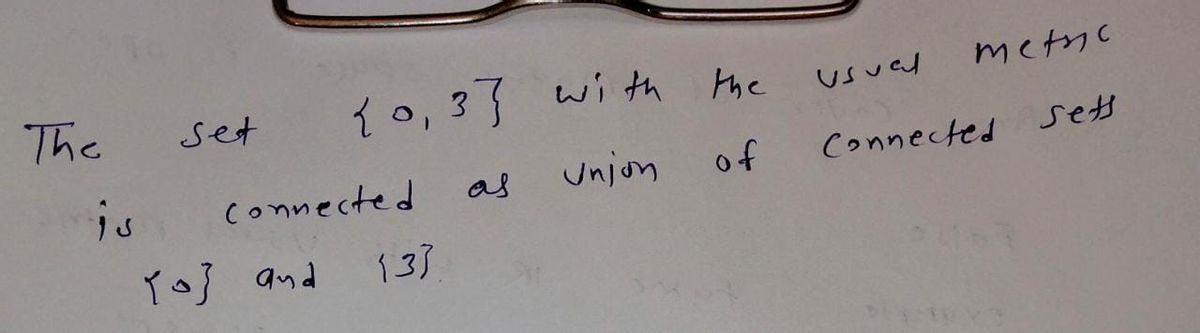 The set {0,3} with the usual metric
is connected as union of connected sets
{0} and {3}.